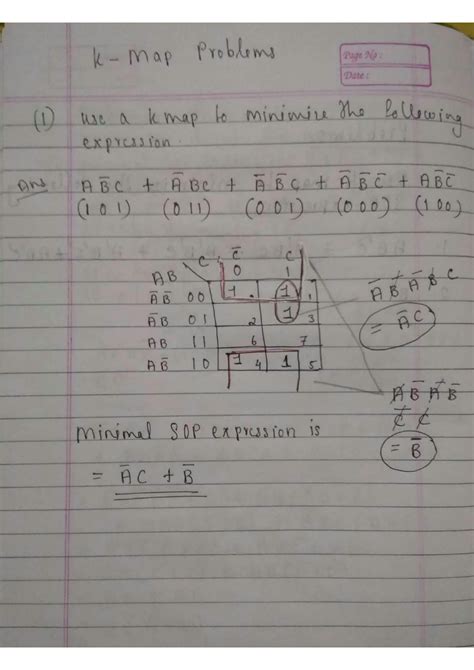 K-Map Problems
Page No:
Date:
(1) use a k map to minimize the following
expression.
Ans A B̅ C + A̅ B C + A̅ B̅ C + A̅ B̅ C̅ + A B̅ C̅
(1 0 1) (0 1 1) (0 0 1) (0 0 0) (1 0 0)
C C̅ C
AB 0 1
A̅ B̅ 00 1 1 1
A̅B 01 2 1 3
AB 11 6 7
AB̅ 10 1 4 1 5
A̅ B̅ A̅ B C
= A̅ C
A B̅ A̅ B̅
C̅ C
= B̅
Minimal SOP expression is
= A̅ C + B̅